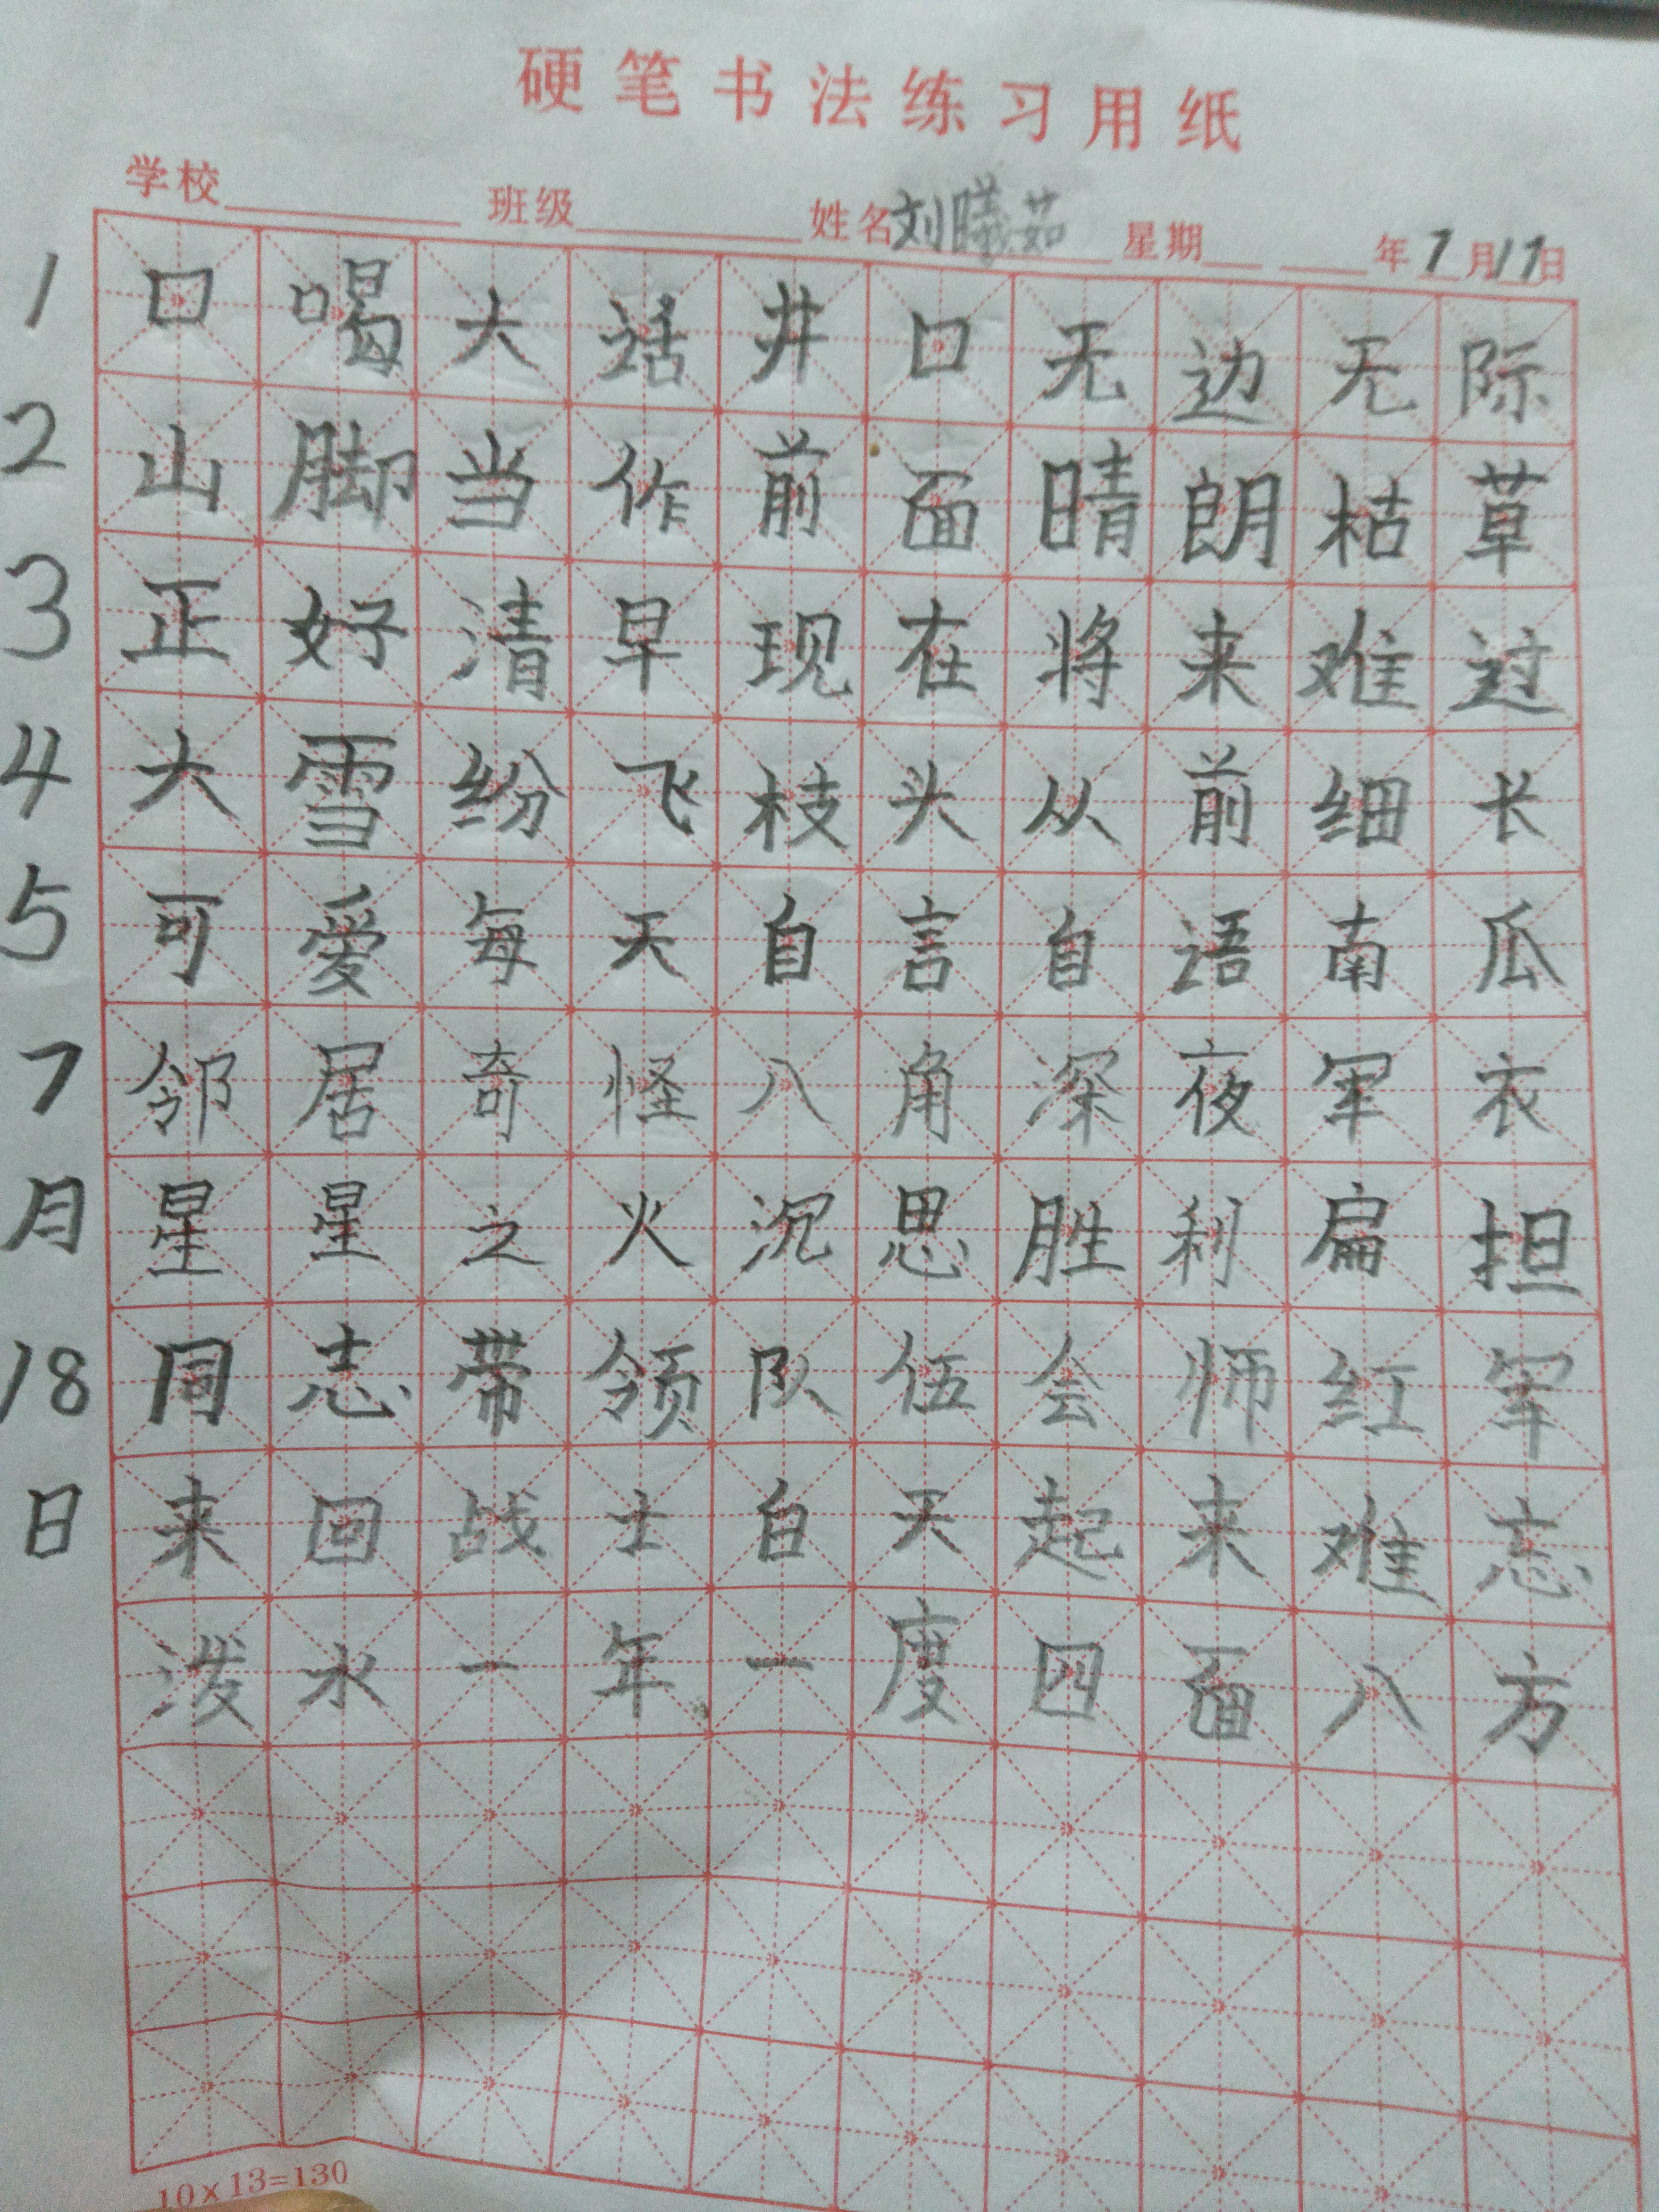 硬笔书法练习用纸
学校 班级 姓名 刘曦茹 星期 年 7 月 17 日
1 口喝大话井口无边无际
2 山脚当作前面晴朗枯草
3 正好清早现在将来难过
4 大雪纷飞枝头从前细长
5 可爱每天自言自语南瓜
7 邻居奇怪八角深夜军衣
月 星星之火沉思胜利扁担
18 同志带领队伍会师红军
日 来回战士白天起来难忘
泼水一年一度四面八方
10×13=130